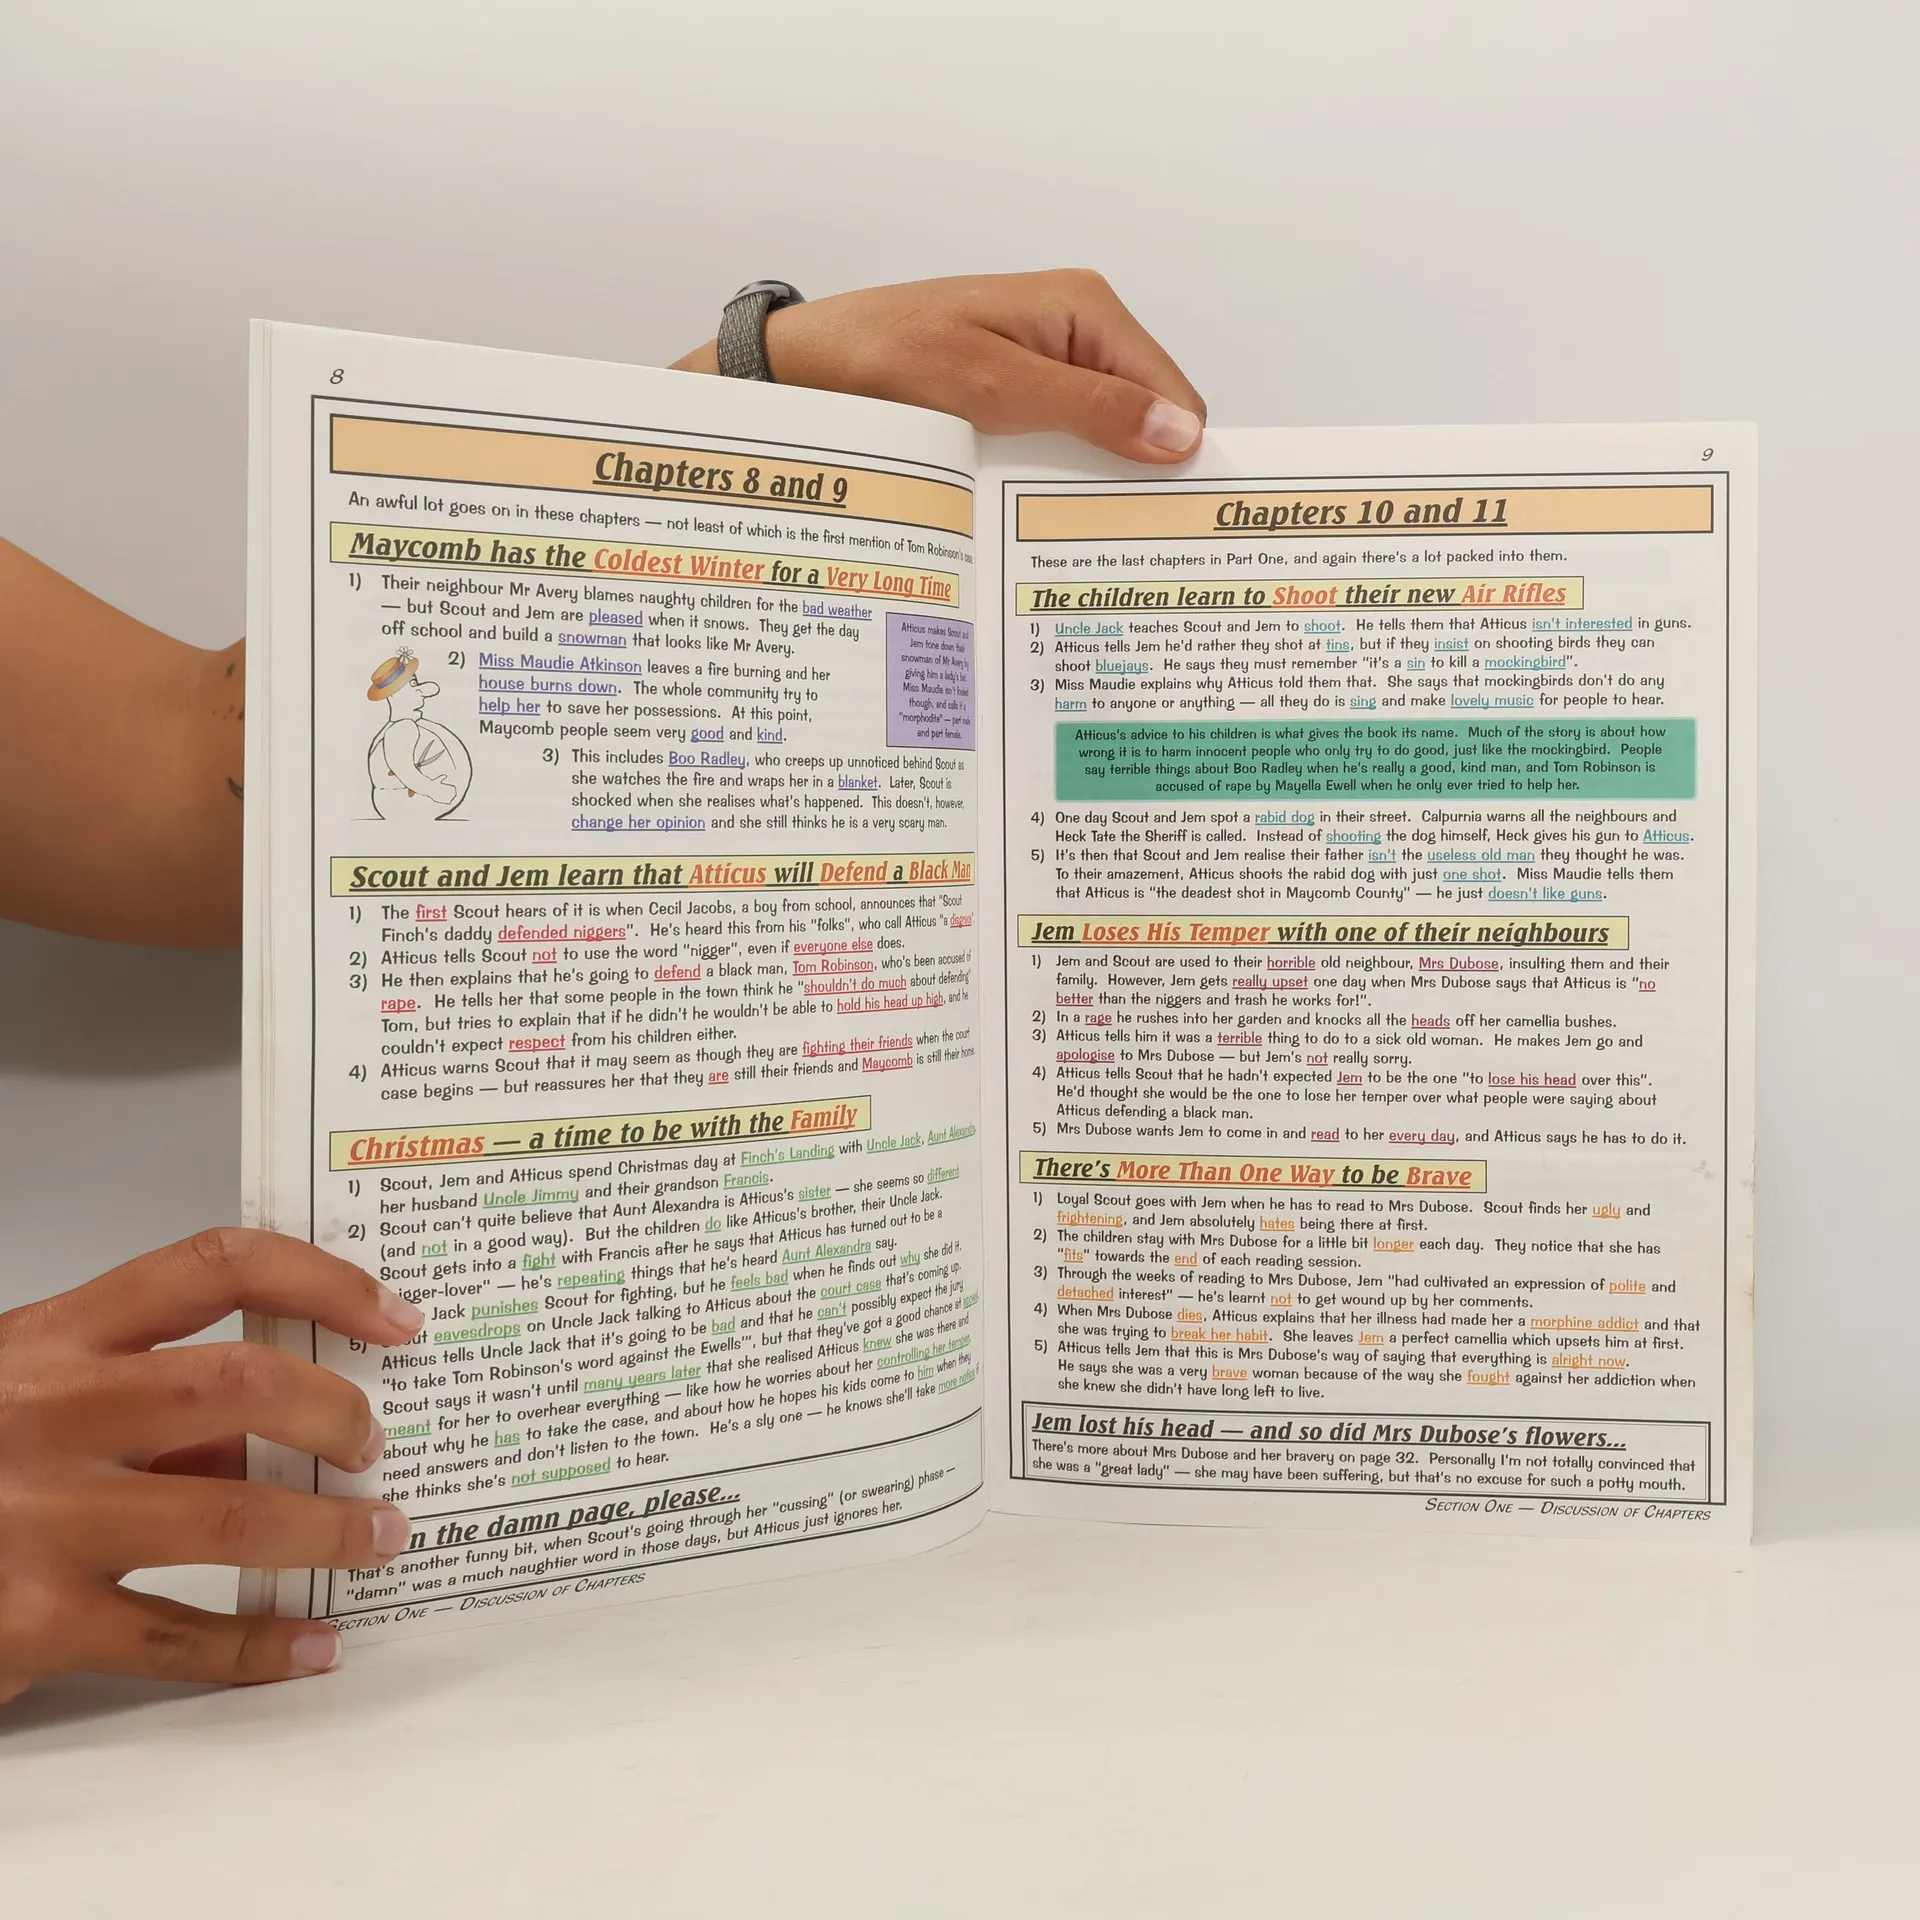 8
Chapters 8 and 9
An awful lot goes on in these chapters — not least of which is the first mention of Tom Robinson's case.
Maycomb has the Coldest Winter for a Very Long Time
1) Their neighbour Mr Avery blames naughty children for the bad weather
— but Scout and Jem are pleased when it snows. They get the day
off school and build a snowman that looks like Mr Avery.
Atticus makes Scout and
Jem tone down their
snowman of Mr Avery by
giving him a lady's hat.
Miss Maudie isn't fooled
though, and calls it a
"morphodite" — part male
and part female.
2) Miss Maudie Atkinson leaves a fire burning and her
house burns down. The whole community try to
help her to save her possessions. At this point,
Maycomb people seem very good and kind.
3) This includes Boo Radley, who creeps up unnoticed behind Scout as
she watches the fire and wraps her in a blanket. Later, Scout is
shocked when she realises what's happened. This doesn't, however,
change her opinion and she still thinks he is a very scary man.
Scout and Jem learn that Atticus will Defend a Black Man
1) The first Scout hears of it is when Cecil Jacobs, a boy from school, announces that "Scout
Finch's daddy defended niggers". He's heard this from his "folks", who call Atticus "a disgrace".
2) Atticus tells Scout not to use the word "nigger", even if everyone else does.
3) He then explains that he's going to defend a black man, Tom Robinson, who's been accused of
rape. He tells her that some people in the town think he "shouldn't do much about defending"
Tom, but tries to explain that if he didn't he wouldn't be able to hold his head up high, and he
couldn't expect respect from his children either.
4) Atticus warns Scout that it may seem as though they are fighting their friends when the court
case begins — but reassures her that they are still their friends and Maycomb is still their home.
Christmas — a time to be with the Family
1) Scout, Jem and Atticus spend Christmas day at Finch's Landing with Uncle Jack, Aunt Alexandra,
her husband Uncle Jimmy and their grandson Francis.
2) Scout can't quite believe that Aunt Alexandra is Atticus's sister — she seems so different
(and not in a good way). But the children do like Atticus's brother, their Uncle Jack.
Scout gets into a fight with Francis after he says that Atticus has turned out to be a
igger-lover" — he's repeating things that he's heard Aunt Alexandra say.
Jack punishes Scout for fighting, but he feels bad when he finds out why she did it.
5) ut eavesdrops on Uncle Jack talking to Atticus about the court case that's coming up.
Atticus tells Uncle Jack that it's going to be bad and that he can't possibly expect the jury
"to take Tom Robinson's word against the Ewells'", but that they've got a good chance at appeal.
Scout says it wasn't until many years later that she realised Atticus knew she was there and
meant for her to overhear everything — like how he worries about her controlling her temper,
about why he has to take the case, and about how he hopes his kids come to him when they
need answers and don't listen to the town. He's a sly one — he knows she'll take more notice if
she thinks she's not supposed to hear.
n the damn page, please...
That's another funny bit, when Scout's going through her "cussing" (or swearing) phase —
"damn" was a much naughtier word in those days, but Atticus just ignores her.
SECTION ONE — DISCUSSION OF CHAPTERS
9
Chapters 10 and 11
These are the last chapters in Part One, and again there's a lot packed into them.
The children learn to Shoot their new Air Rifles
1) Uncle Jack teaches Scout and Jem to shoot. He tells them that Atticus isn't interested in guns.
2) Atticus tells Jem he'd rather they shot at tins, but if they insist on shooting birds they can
shoot bluejays. He says they must remember "it's a sin to kill a mockingbird".
3) Miss Maudie explains why Atticus told them that. She says that mockingbirds don't do any
harm to anyone or anything — all they do is sing and make lovely music for people to hear.
Atticus's advice to his children is what gives the book its name. Much of the story is about how
wrong it is to harm innocent people who only try to do good, just like the mockingbird. People
say terrible things about Boo Radley when he's really a good, kind man, and Tom Robinson is
accused of rape by Mayella Ewell when he only ever tried to help her.
4) One day Scout and Jem spot a rabid dog in their street. Calpurnia warns all the neighbours and
Heck Tate the Sheriff is called. Instead of shooting the dog himself, Heck gives his gun to Atticus.
5) It's then that Scout and Jem realise their father isn't the useless old man they thought he was.
To their amazement, Atticus shoots the rabid dog with just one shot. Miss Maudie tells them
that Atticus is "the deadest shot in Maycomb County" — he just doesn't like guns.
Jem Loses His Temper with one of their neighbours
1) Jem and Scout are used to their horrible old neighbour, Mrs Dubose, insulting them and their
family. However, Jem gets really upset one day when Mrs Dubose says that Atticus is "no
better than the niggers and trash he works for!".
2) In a rage he rushes into her garden and knocks all the heads off her camellia bushes.
3) Atticus tells him it was a terrible thing to do to a sick old woman. He makes Jem go and
apologise to Mrs Dubose — but Jem's not really sorry.
4) Atticus tells Scout that he hadn't expected Jem to be the one "to lose his head over this".
He'd thought she would be the one to lose her temper over what people were saying about
Atticus defending a black man.
5) Mrs Dubose wants Jem to come in and read to her every day, and Atticus says he has to do it.
There's More Than One Way to be Brave
1) Loyal Scout goes with Jem when he has to read to Mrs Dubose. Scout finds her ugly and
frightening, and Jem absolutely hates being there at first.
2) The children stay with Mrs Dubose for a little bit longer each day. They notice that she has
"fits" towards the end of each reading session.
3) Through the weeks of reading to Mrs Dubose, Jem "had cultivated an expression of polite and
detached interest" — he's learnt not to get wound up by her comments.
4) When Mrs Dubose dies, Atticus explains that her illness had made her a morphine addict and that
she was trying to break her habit. She leaves Jem a perfect camellia which upsets him at first.
5) Atticus tells Jem that this is Mrs Dubose's way of saying that everything is alright now.
He says she was a very brave woman because of the way she fought against her addiction when
she knew she didn't have long left to live.
Jem lost his head — and so did Mrs Dubose's flowers...
There's more about Mrs Dubose and her bravery on page 32. Personally I'm not totally convinced that
she was a "great lady" — she may have been suffering, but that's no excuse for such a potty mouth.
SECTION ONE — DISCUSSION OF CHAPTERS